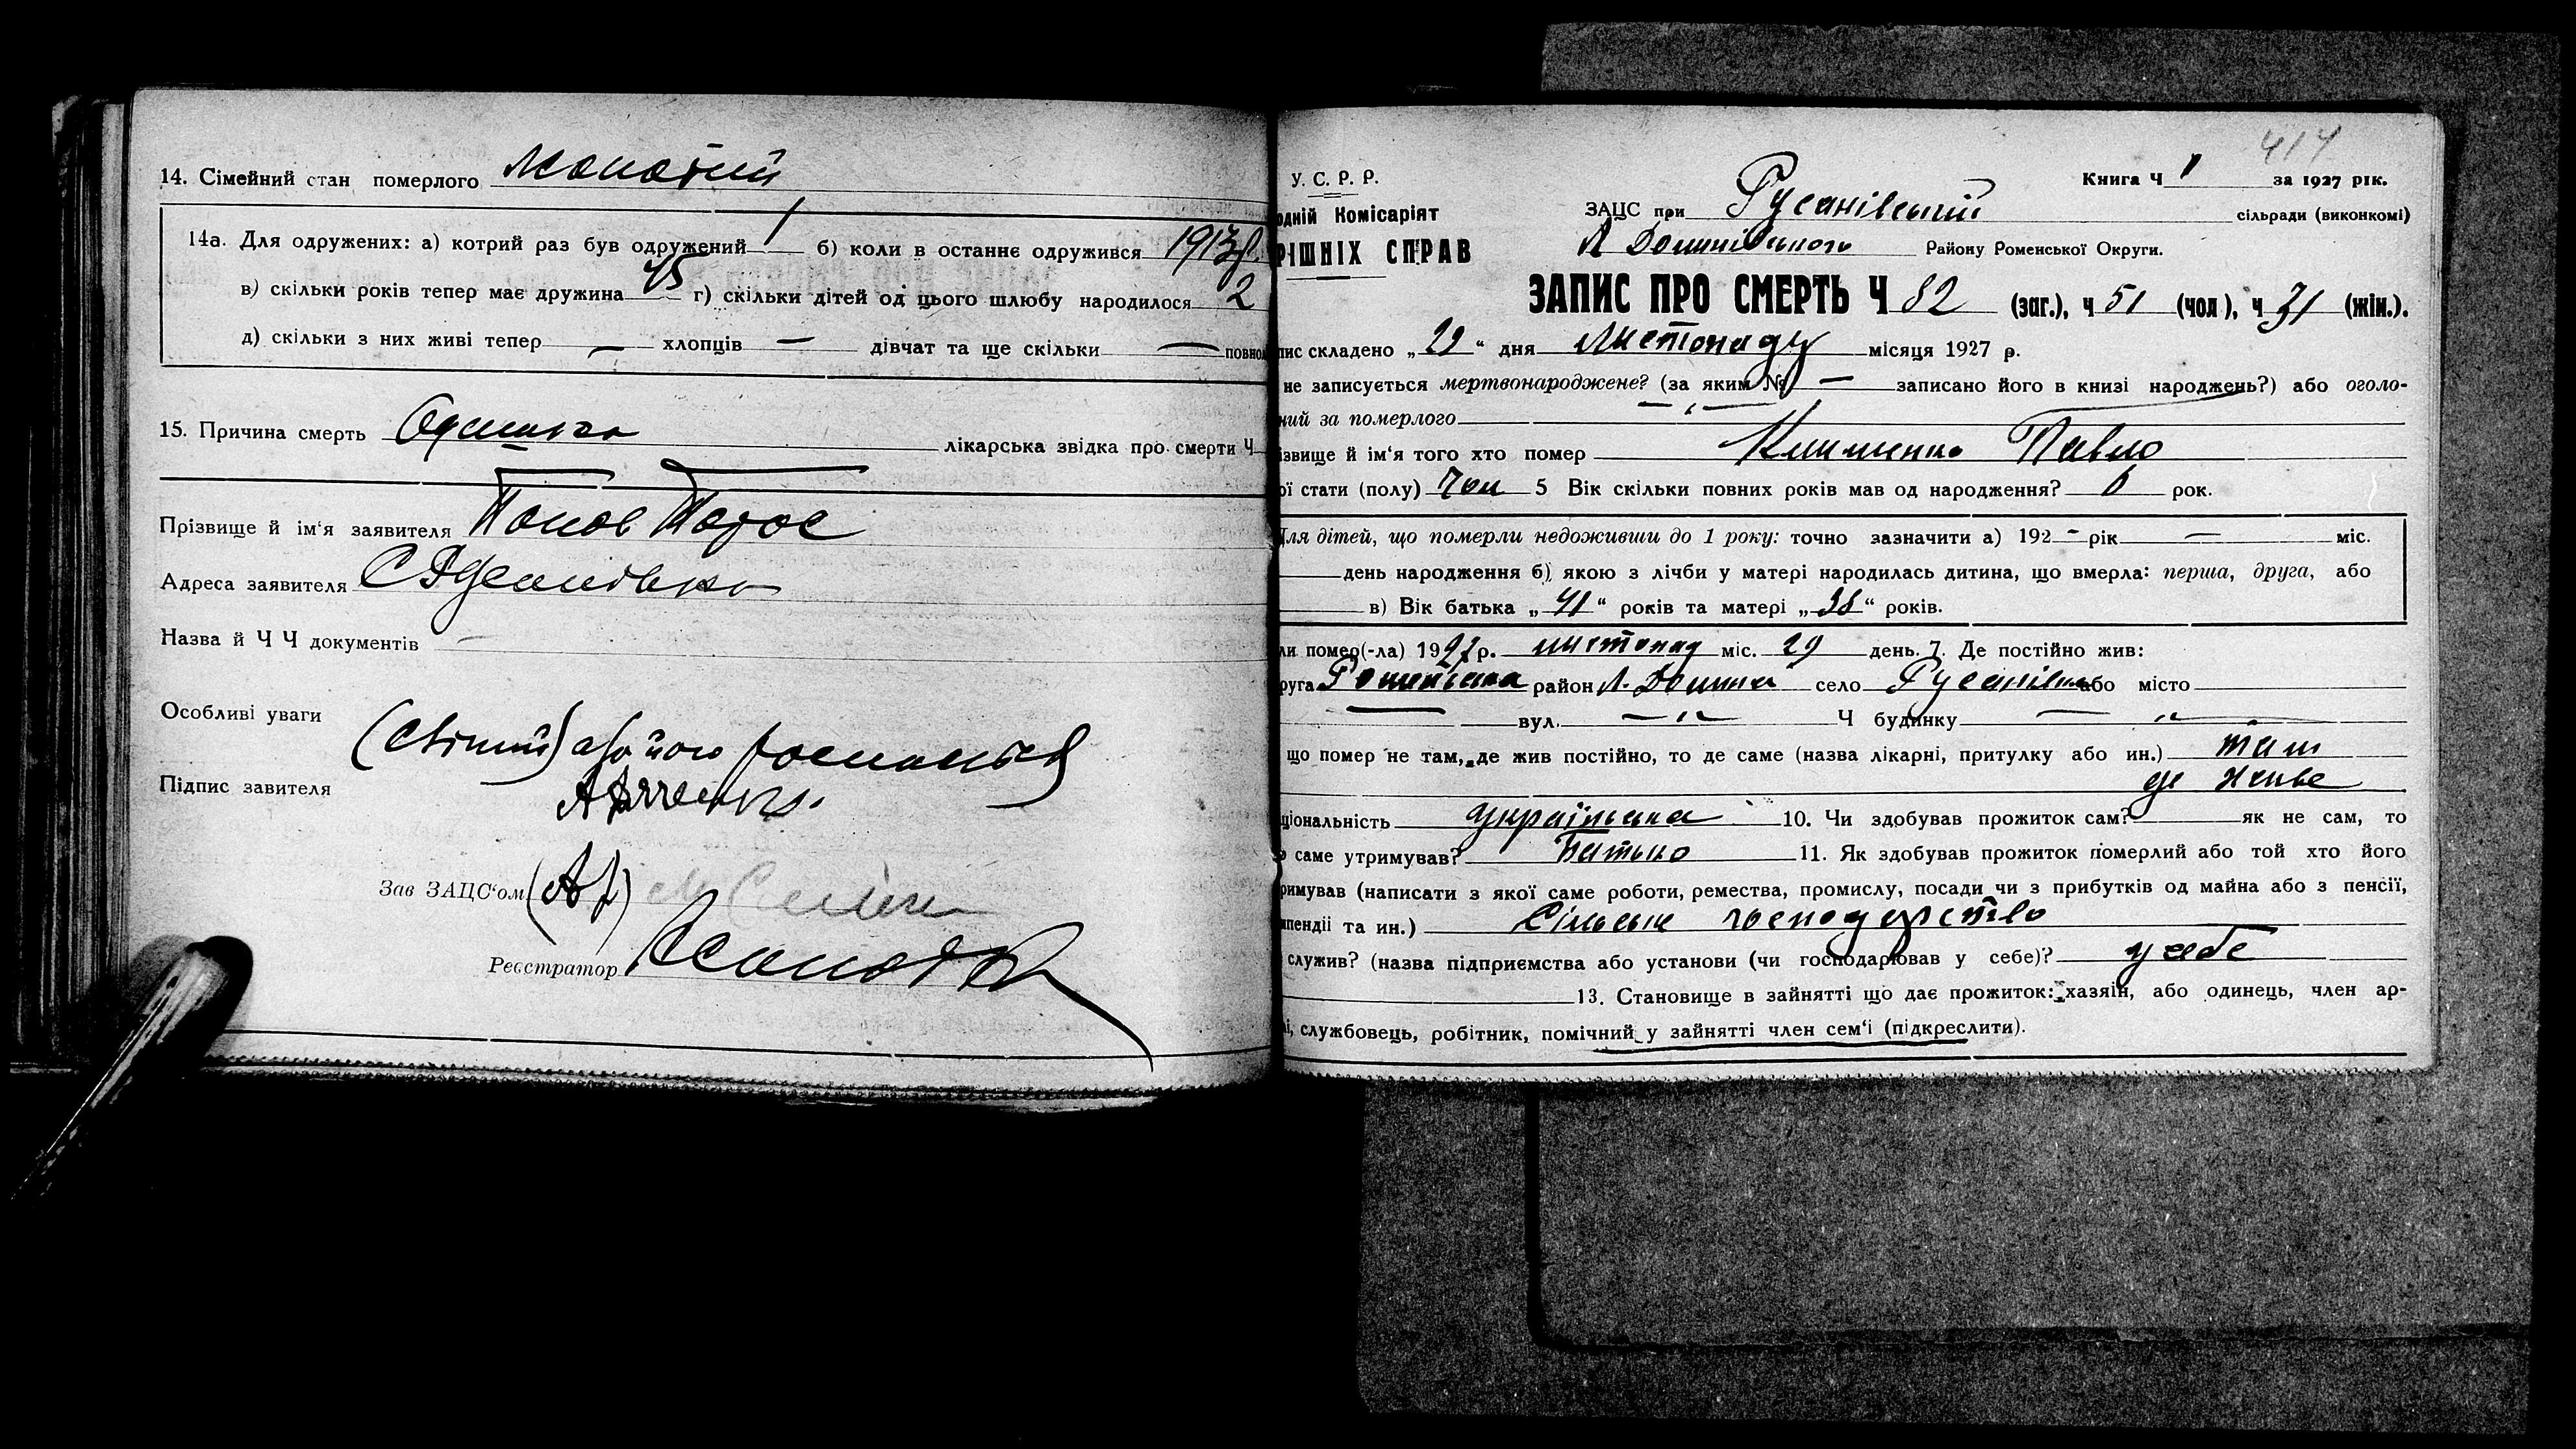 14. Сімейний стан померлого жонатий
14а. Для одружених: а) котрий раз був одружений 1 б) коли в останнє одружився 1913 р.
в) скільки років тепер має дружина 45 г) скільки дітей од цього шлюбу народилося 2
д) скільки з них живі тепер — хлопців — дівчат та ще скільки — повнол
15. Причина смерть Одишка лікарська звідка про смерти Ч
Прізвище й ім'я заявителя Попов
Адреса заявителя С Русанівка
Назва й Ч Ч документів —
Особливі уваги
(Свідки) або його
Підпис завителя
Зав ЗАЦС'ом
Реєстратор
414
У. С. Р. Р. Книга Ч 1 за 1927 рік.
одній Комісаріят ЗАЦС при Русанівській сільради (виконкомі)
РІШНІХ СПРАВ Л Долинівського Району Роменської Округи.
ЗАПИС ПРО СМЕРТЬ Ч 82 (заг.), ч 51 (чол.), ч 31 (жін.).
пис складено „29" дня листопаду місяця 1927 р.
не записується мертвонароджене? (за яким № — записано його в книзі народжень?) або оголо-
ний за померлого — „ —
ізвище й ім'я того хто помер Клименко Павло
ої стати (полу) чол 5 Вік скільки повних років мав од народження? 6 рок.
Для дітей, що померли недоживши до 1 року: точно зазначити а) 192 - рік — міс.
день народження б) якою з лічби у матері народилась дитина, що вмерла: перша, друга, або
в) Вік батька „41" років та матері „38" років.
ли помер(-ла) 1927 р. листопад міс. 29 день. 7. Де постійно жив:
руга Роменська район Л. Долина село Русанівка або місто
вул. — „ — Ч будинку — „ —
що помер не там, де жив постійно, то де саме (назва лікарні, притулку або ин.) там
де живе
ціональність українська 10. Чи здобував прожиток сам? як не сам, то
о саме утримував? Батько 11. Як здобував прожиток померлий або той хто його
римував (написати з якої саме роботи, ремества, промислу, посади чи з прибутків од майна або з пенсії,
ипендії та ин.) Сільське господарство
служив? (назва підприємства або установи (чи господарював у себе)? у себе
13. Становище в зайнятті що дає прожиток: хазяїн, або одинець, член ар-
лі, службовець, робітник, помічний у зайнятті член сем'ї (підкреслити).